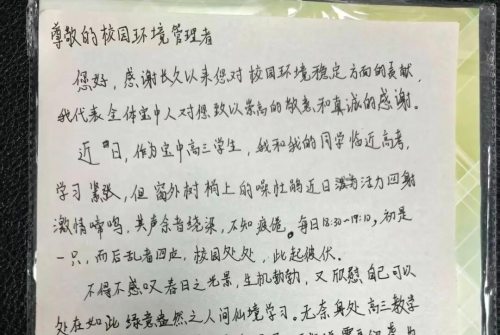 尊敬的校园环境管理者
您好，感谢长久以来您对校园环境稳定方面的贡献，
我代表全体宝中人对您致以崇高的敬意和真诚的感谢。
近日，作为宝中高三学生，我和我的同学临近高考，
学习紧张，但窗外树梢上的噪牡鹃近日活力四射
激情啼鸣，其声余音绕梁，不知疲倦。每日18:30~19:10，初是
一只，而后乱者四应，校园处处，此起彼伏。
不得不感叹春日之光景，生机勃勃，又欣慰自己可以
处在如此绿意盎然之人间仙境学习。无奈身处高三教学